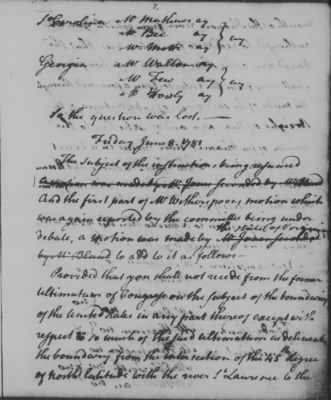 So Carolina Mr Mathews ay
Mr Bee ay } ay
Mr Motte ay
Georgia Mr Walton ay
Mr Few ay } ay
Mr Howly ay
So the question was lost.
Friday June 8. 1781
The subject of the instructions being resumed
a motion was made by Mr Jones seconded by Mr
And the first part of Mr Witherspoons motion which
was again reported by the committee being under
debate, a motion was made by the state of Virginia
Mr Jones seconded
by Mr Bland to add to it as follows
Provided that you shall not recede from the former
ultimatum of Congress on the subject of the boundaries
of the United States in any part thereof except with
respect to so much of the said ultimatum as delineates
the boundary from the intersection of the 45th degree
of north latitude with the river St Lawrence to the